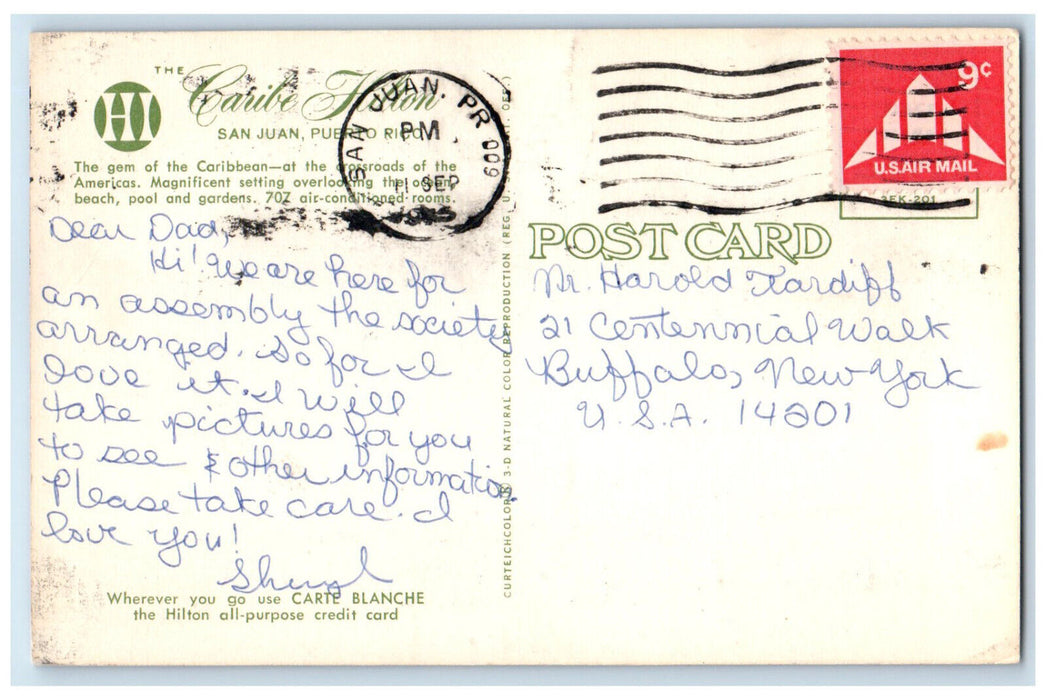 THE
HI
Caribe Hilton
SAN JUAN, PUERTO RICO
The gem of the Caribbean—at the crossroads of the
Americas. Magnificent setting overlooking the ocean,
beach, pool and gardens. 707 air-conditioned rooms.
SAN JUAN, PR 009
PM
11 SEP
9c
U.S. AIR MAIL
3EK-201
POST CARD
Dear Dad,
Hi! We are here for
an assembly the society
arranged. So far I
love it. I will
take pictures for you
to see & other information.
Please take care. I
love you!
Sheryl
Wherever you go use CARTE BLANCHE
the Hilton all-purpose credit card
CURTEICHCOLOR® 3-D NATURAL COLOR REPRODUCTION (REG. U.S.
Mr. Harold Tardiff
21 Centennial Walk
Buffalo, New York
U.S.A. 14201